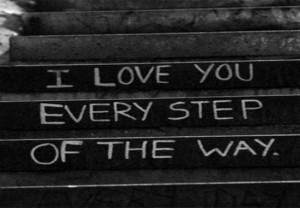 I LOVE YOU
EVERY STEP
OF THE WAY.